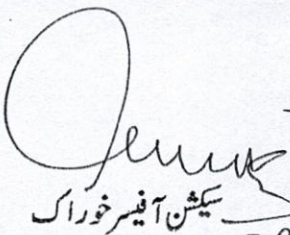 سیکشن آفیسر خوراک